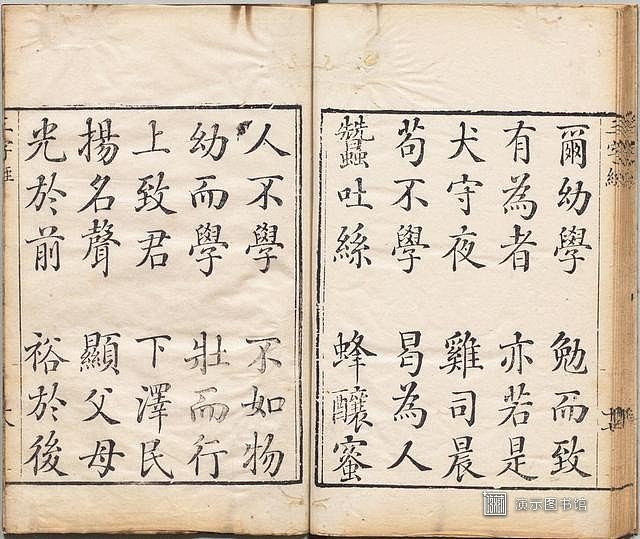 爾幼學 勉而致
有為者 亦若是
犬守夜 雞司晨
苟不學 曷為人
蠶吐絲 蜂釀蜜
人不學 不如物
幼而學 壯而行
上致君 下澤民
揚名聲 顯父母
光於前 裕於後
三字經
演示图书馆